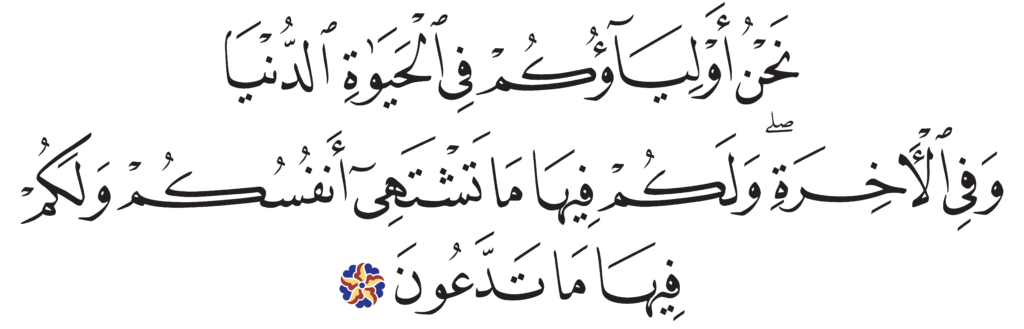 نَحْنُ أَوْلِيَآؤُكُمْ فِى ٱلْحَيَوٰةِ ٱلدُّنْيَا
وَفِى ٱلْأَخِرَةِ ۖ وَلَكُمْ فِيهَا مَا تَشْتَهِىٓ أَنفُسُكُمْ وَلَكُمْ
فِيهَا مَا تَدَّعُونَ